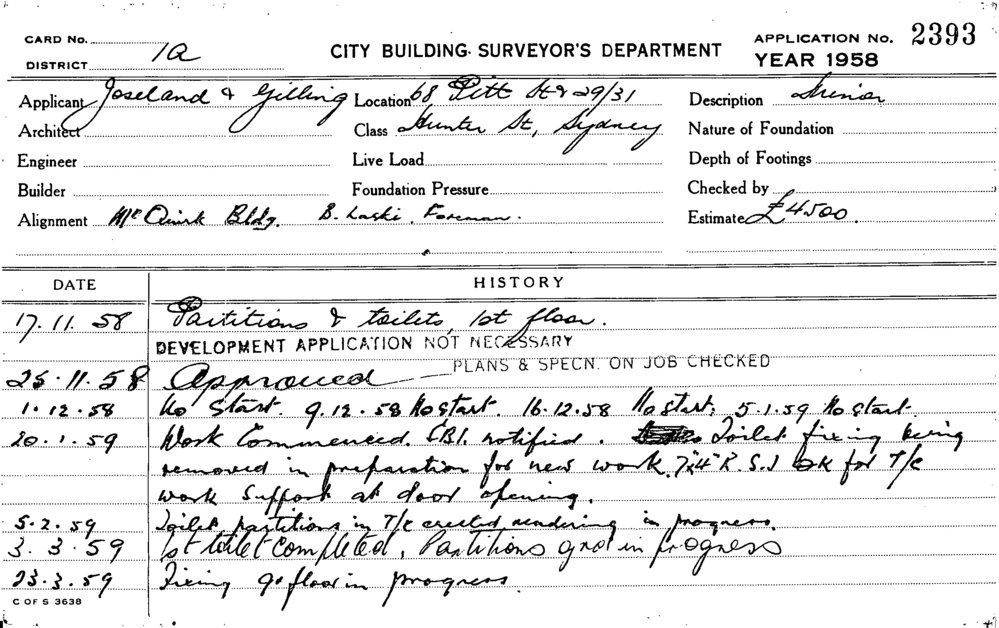 CARD No.
DISTRICT 1A
CITY BUILDING SURVEYOR'S DEPARTMENT
APPLICATION No. 2393
YEAR 1958
Applicant Joseland & Gilling
Location 68, Pitt St & 29/31
Description Interior
Architect
Class Hunter St, Sydney
Nature of Foundation
Engineer
Live Load
Depth of Footings
Builder
Foundation Pressure
Checked by
Alignment Mc Quirk Bldg. B. Laski. Foreman.
Estimate £4500.
DATE HISTORY
17.11.58 Partitions & toilets, 1st floor.
DEVELOPMENT APPLICATION NOT NECESSARY
PLANS & SPECN. ON JOB CHECKED
25.11.58 Approved
1.12.58 No Start. 9.12.58 No start. 16.12.58 No start. 5.1.59 No start.
20.1.59 Work Commenced. notified. Toilet fixing being
removed in preparation for new work. 7"x4" R.S.J OK for T/C
work support at door opening.
5.2.59 Toilet partitions in T/C erected rendering in progress.
3.3.59 1st toilet completed, Partitions grd in progress
23.3.59 Fixing floor in progress.
C OF S 3638